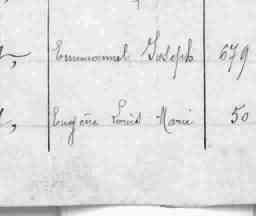 Emmanuel Joseph 679
Eugène Louis Marie 50